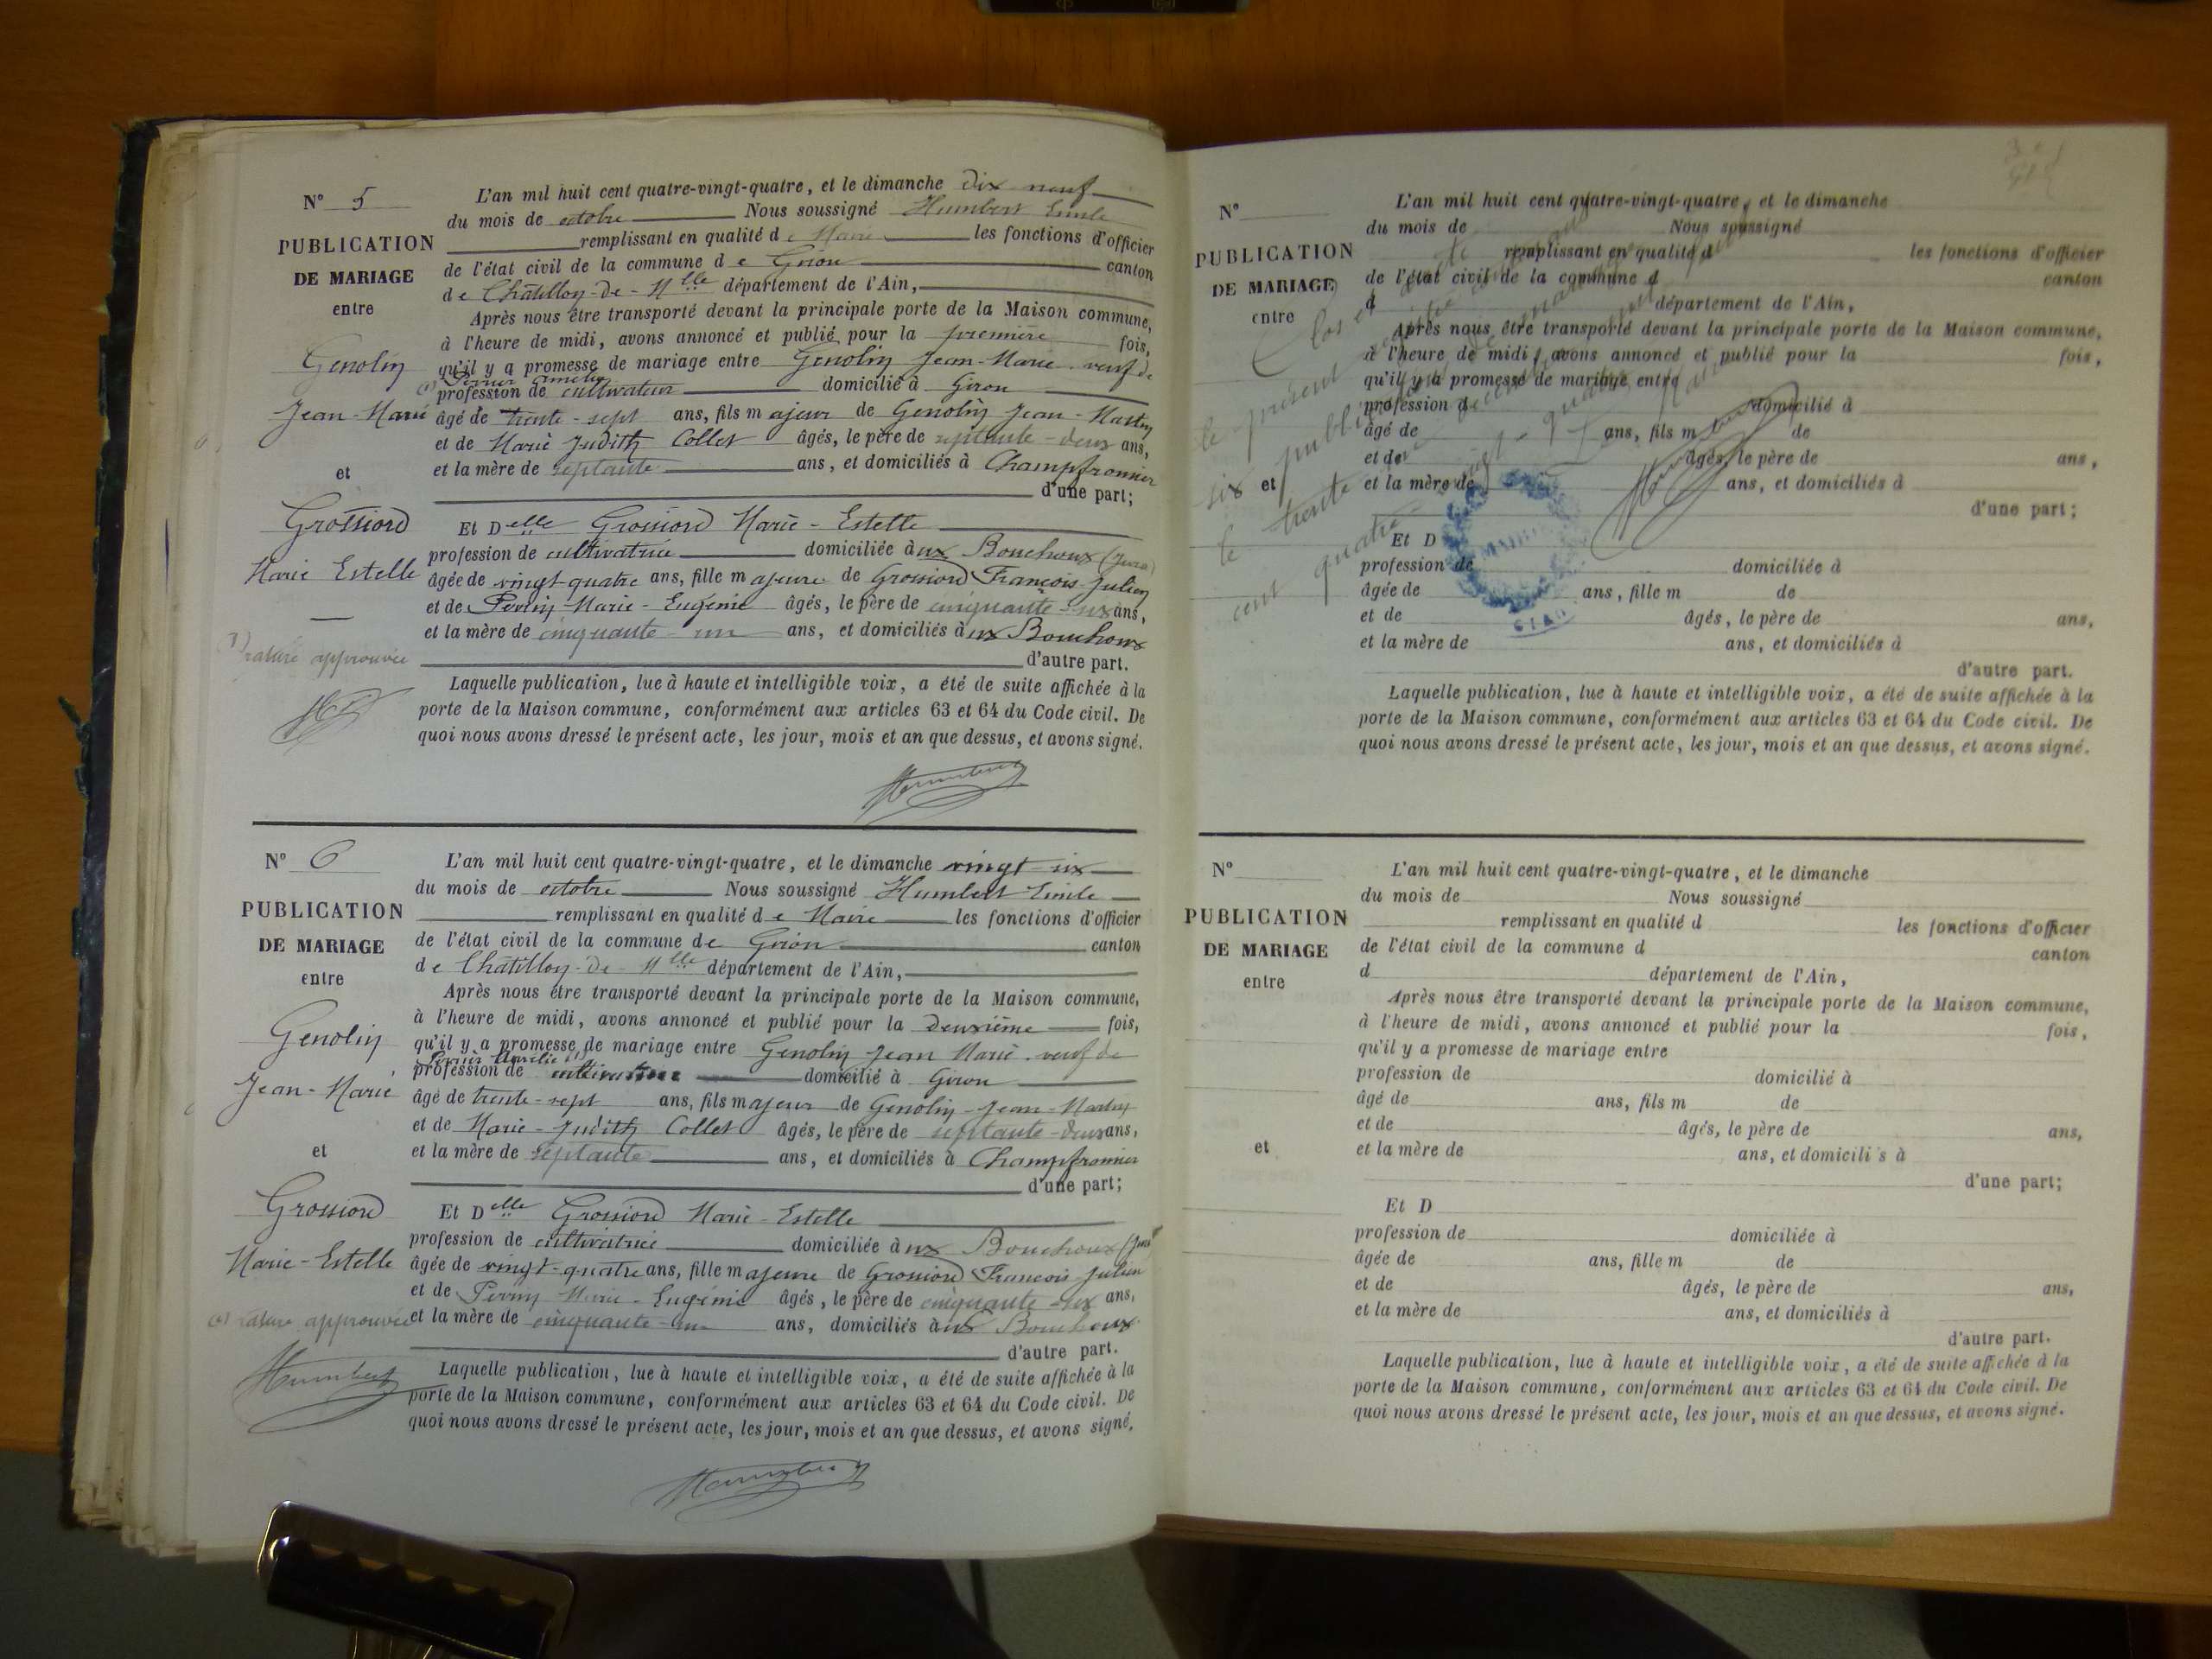 N° 5
PUBLICATION
DE MARIAGE
entre
Genolin
Jean-Marie
et
Grossiord
Marie Estelle
rature approuvée
L'an mil huit cent quatre-vingt-quatre, et le dimanche dix neuf
du mois de octobre Nous soussigné Humbert Emile
remplissant en qualité de Maire les fonctions d'officier
de l'état civil de la commune de Giron canton
de Châtillon-de-Mlle département de l'Ain,
Après nous être transporté devant la principale porte de la Maison commune,
à l'heure de midi, avons annoncé et publié pour la première fois,
qu'il y a promesse de mariage entre Genolin Jean-Marie veuf de
profession de cultivateur domicilié à Giron
âgé de trente-sept ans, fils majeur de Genolin Jean-Martin
et de Marie Judith Collet âgés, le père de septante-deux ans,
et la mère de septante ans, et domiciliés à Champfromier
d'une part;
Et Delle Grossiord Marie-Estelle
profession de cultivatrice domiciliée aux Bouchoux (Jura)
âgée de vingt-quatre ans, fille majeure de Grossiord François Julien
et de Perrin Marie-Eugénie âgés, le père de cinquante-six ans,
et la mère de cinquante-un ans, et domiciliés aux Bouchoux
d'autre part.
Laquelle publication, lue à haute et intelligible voix, a été de suite affichée à la
porte de la Maison commune, conformément aux articles 63 et 64 du Code civil. De
quoi nous avons dressé le présent acte, les jour, mois et an que dessus, et avons signé.
Humbert
N° 6
PUBLICATION
DE MARIAGE
entre
Genolin
Jean-Marie
et
Grossiord
Marie-Estelle
rature approuvée
Humbert
L'an mil huit cent quatre-vingt-quatre, et le dimanche vingt-six
du mois de octobre Nous soussigné Humbert Emile
remplissant en qualité de Maire les fonctions d'officier
de l'état civil de la commune de Giron canton
de Châtillon-de-Mlle département de l'Ain,
Après nous être transporté devant la principale porte de la Maison commune,
à l'heure de midi, avons annoncé et publié pour la deuxième fois,
qu'il y a promesse de mariage entre Genolin Jean Marie veuf de
profession de cultivateur domicilié à Giron
âgé de trente-sept ans, fils majeur de Genolin-Jean-Martin
et de Marie-Judith Collet âgés, le père de septante-deux ans,
et la mère de septante ans, et domiciliés à Champfromier
d'une part;
Et Delle Grossiord Marie-Estelle
profession de cultivatrice domiciliée aux Bouchoux (Jura)
âgée de vingt-quatre ans, fille majeure de Grossiord François Julien
et de Perrin Marie-Eugénie âgés, le père de cinquante-six ans,
et la mère de cinquante-un ans, domiciliés aux Bouchoux
d'autre part.
Laquelle publication, lue à haute et intelligible voix, a été de suite affichée à la
porte de la Maison commune, conformément aux articles 63 et 64 du Code civil. De
quoi nous avons dressé le présent acte, les jour, mois et an que dessus, et avons signé.
Humbert
N°
PUBLICATION
DE MARIAGE
entre
et
L'an mil huit cent quatre-vingt-quatre, et le dimanche
du mois de Nous soussigné
remplissant en qualité d les fonctions d'officier
de l'état civil de la commune d canton
d département de l'Ain,
Après nous être transporté devant la principale porte de la Maison commune,
à l'heure de midi, avons annoncé et publié pour la fois,
qu'il y a promesse de mariage entre
profession d domicilié à
âgé de ans, fils m de
et de âgés, le père de ans,
et la mère de ans, et domiciliés à
d'une part;
Et D
profession de domiciliée à
âgée de ans, fille m de
et de âgés, le père de ans,
et la mère de ans, et domiciliés à
d'autre part.
Laquelle publication, lue à haute et intelligible voix, a été de suite affichée à la
porte de la Maison commune, conformément aux articles 63 et 64 du Code civil. De
quoi nous avons dressé le présent acte, les jour, mois et an que dessus, et avons signé.
le présent
six
le trente
cent quatre
MAIRIE
N°
PUBLICATION
DE MARIAGE
entre
et
L'an mil huit cent quatre-vingt-quatre, et le dimanche
du mois de Nous soussigné
remplissant en qualité d les fonctions d'officier
de l'état civil de la commune d canton
d département de l'Ain,
Après nous être transporté devant la principale porte de la Maison commune,
à l'heure de midi, avons annoncé et publié pour la fois,
qu'il y a promesse de mariage entre
profession de domicilié à
âgé de ans, fils m de
et de âgés, le père de ans,
et la mère de ans, et domicili s à
d'une part;
Et D
profession de domiciliée à
âgée de ans, fille m de
et de âgés, le père de ans,
et la mère de ans, et domiciliés à
d'autre part.
Laquelle publication, lue à haute et intelligible voix, a été de suite affichée à la
porte de la Maison commune, conformément aux articles 63 et 64 du Code civil. De
quoi nous avons dressé le présent acte, les jour, mois et an que dessus, et avons signé.